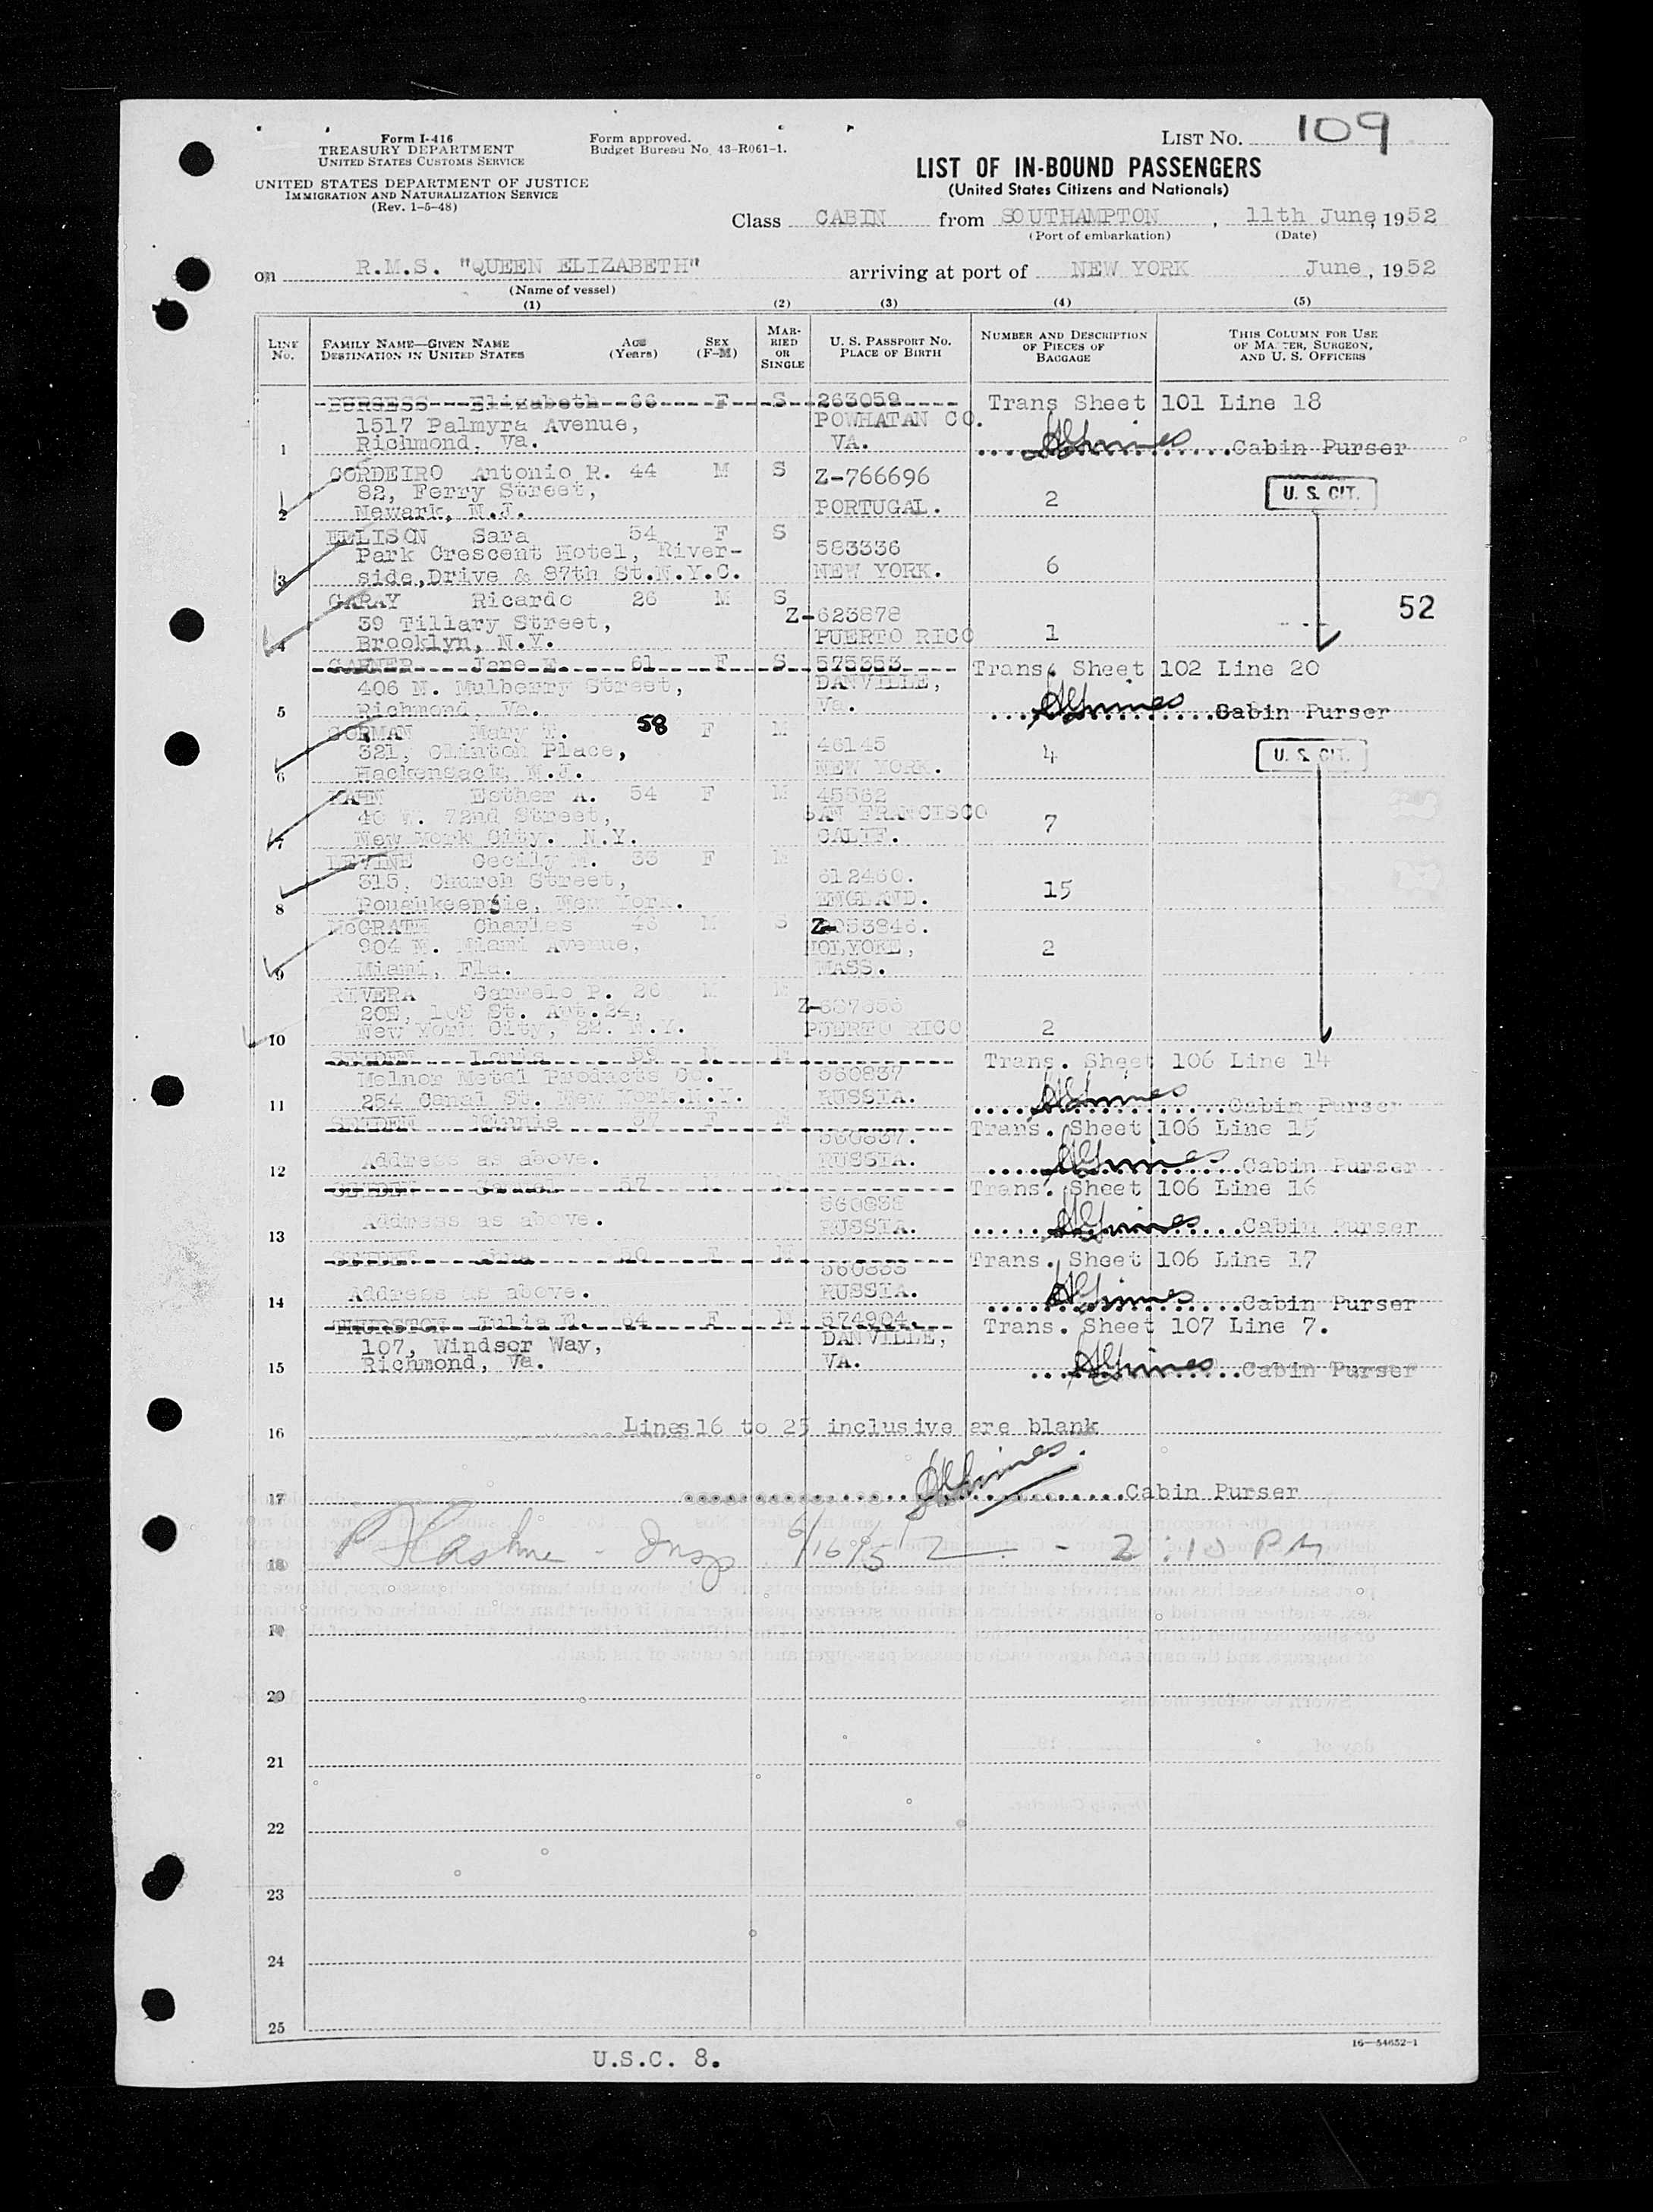 Form I-416
TREASURY DEPARTMENT
UNITED STATES CUSTOMS SERVICE
UNITED STATES DEPARTMENT OF JUSTICE
IMMIGRATION AND NATURALIZATION SERVICE
(Rev. 1-5-48)
Form approved.
Budget Bureau No. 43-R061-1.
LIST NO. 109
LIST OF IN-BOUND PASSENGERS
(United States Citizens and Nationals)
Class CABIN from SOUTHAMPTON, 11th June, 1952
(Port of embarkation) (Date)
on R.M.S. "QUEEN ELIZABETH" arriving at port of NEW YORK June, 1952
(Name of vessel)
(1) (2) (3) (4) (5)
LINE No. FAMILY NAME—GIVEN NAME DESTINATION IN UNITED STATES AGE (Years) SEX (F-M) MARRIED OR SINGLE U. S. PASSPORT NO. PLACE OF BIRTH NUMBER AND DESCRIPTION OF PIECES OF BAGGAGE THIS COLUMN FOR USE OF MASTER, SURGEON, AND U. S. OFFICERS
BURGESS Elizabeth 66 F S 263059 Trans Sheet 101 Line 18
1517 Palmyra Avenue, POWHATAN CO.
1 Richmond, Va. VA. Cabin Purser
CORDEIRO Antonio R. 44 M S Z-766696
82, Ferry Street, 2 U. S. CIT.
2 Newark, N.J. PORTUGAL.
ELLISON Sara 54 F S
Park Crescent Hotel, River- 583336
3 side,Drive & 87th St.N.Y.C. NEW YORK. 6
GARAY Ricardo 26 M S 52
39 Tillary Street, Z-623878
4 Brooklyn, N.Y. PUERTO RICO 1
GARNER Jane E. 61 F S 575353 Trans. Sheet 102 Line 20
406 N. Mulberry Street, DANVILLE,
5 Richmond, Va. Va. Cabin Purser
GORMAN Mary T. 58 F M
321, Clinton Place, 46145 4 U. S. CIT.
6 Hackensack, N.J. NEW YORK.
KAHN Esther A. 54 F M 45562
40 W. 72nd Street, SAN FRANCISCO 7
7 New York City. N.Y. CALIF.
LEVINE Cecily M. 33 F M
315, Church Street, 612460. 15
8 Poughkeepsie, New York. ENGLAND.
McGRATH Charles 46 M S Z-053846.
904 N. Miami Avenue, HOLYOKE, 2
9 Miami, Fla. MASS.
RIVERA Carmelo P. 26 M M
20E, 109 St. Apt.24,
10 New York City, 22. N.Y. PUERTO RICO 2
Louis 59 M M Trans. Sheet 106 Line 14
Molnor Metal Products Co. 560837
11 254 Canal St. New York.N.Y. RUSSIA. Cabin Purser
Minnie 57 F M Trans. Sheet 106 Line 15
560837.
12 Address as above. RUSSIA. Cabin Purser
Samuel 57 M M Trans. Sheet 106 Line 16
560838
13 Address as above. RUSSIA. Cabin Purser
F M Trans. Sheet 106 Line 17
560838
14 Address as above. RUSSIA. Cabin Purser
THURSTON Julia N. 64 F M 574904. Trans. Sheet 107 Line 7.
107, Windsor Way, DANVILLE,
15 Richmond, Va. VA. Cabin Purser
16 Lines 16 to 25 inclusive are blank
17 Cabin Purser
18 Insp 6/16/52 - 2:10 PM
19
20
21
22
23
24
25
16—54652-1
U.S.C. 8.